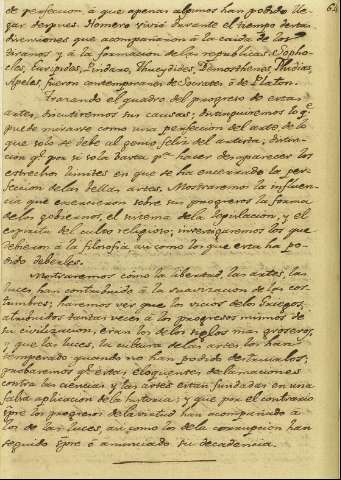 de perfeccion á que apenas algunos han podido lle- 64
gar despues. Homero vivió durante el tiempo de las
disensiones que acompañaron á la caida de los
tiranos y á la formacion de las republicas. Sopho-
cles, Euripides, Pindaro, Thucydides, Demosthenes, Phidias,
Apeles, fueron contemporaneos de Socrates ó de Platon.
Trazando el quadro del progreso de estas
artes, discutiremos sus causas; distinguiremos lo q.e
puede mirarse como una perfeccion del arte, de lo
que solo se debe al genio feliz del artista, distin-
cion q.e por si sola basta p.a hacer desaparecer los
estrechos limites en que se ha encerrado la per-
feccion de las bellas artes. Mostraremos la influen-
cia que exercieron sobre sus progresos la forma
de los gobiernos, el sistema de la legislacion, y el
espiritu del culto religioso; investigaremos los que
debieron á la filosofia, asi como los que esta ha po-
dido deberles.
Mostraremos cómo la libertad, las artes, las
luces, han contribuido á la suavizacion de las cos-
tumbres; haremos ver que los vicios de los Griegos,
atribuidos tantas veces á los progresos mismos de
su civilizacion, eran los de los siglos mas groseros,
y que las luces, la cultura de las artes los han
temperado quando no han podido destruirlos;
probaremos q.e estas eloquentes declamaciones
contra las ciencias y las artes estan fundadas en una
falsa aplicacion de la historia; y que por el contrario
spre los progresos de la virtud han acompañado á
los de las luces, asi como los de la corrupcion han
seguido spre ó anunciado su decadencia.